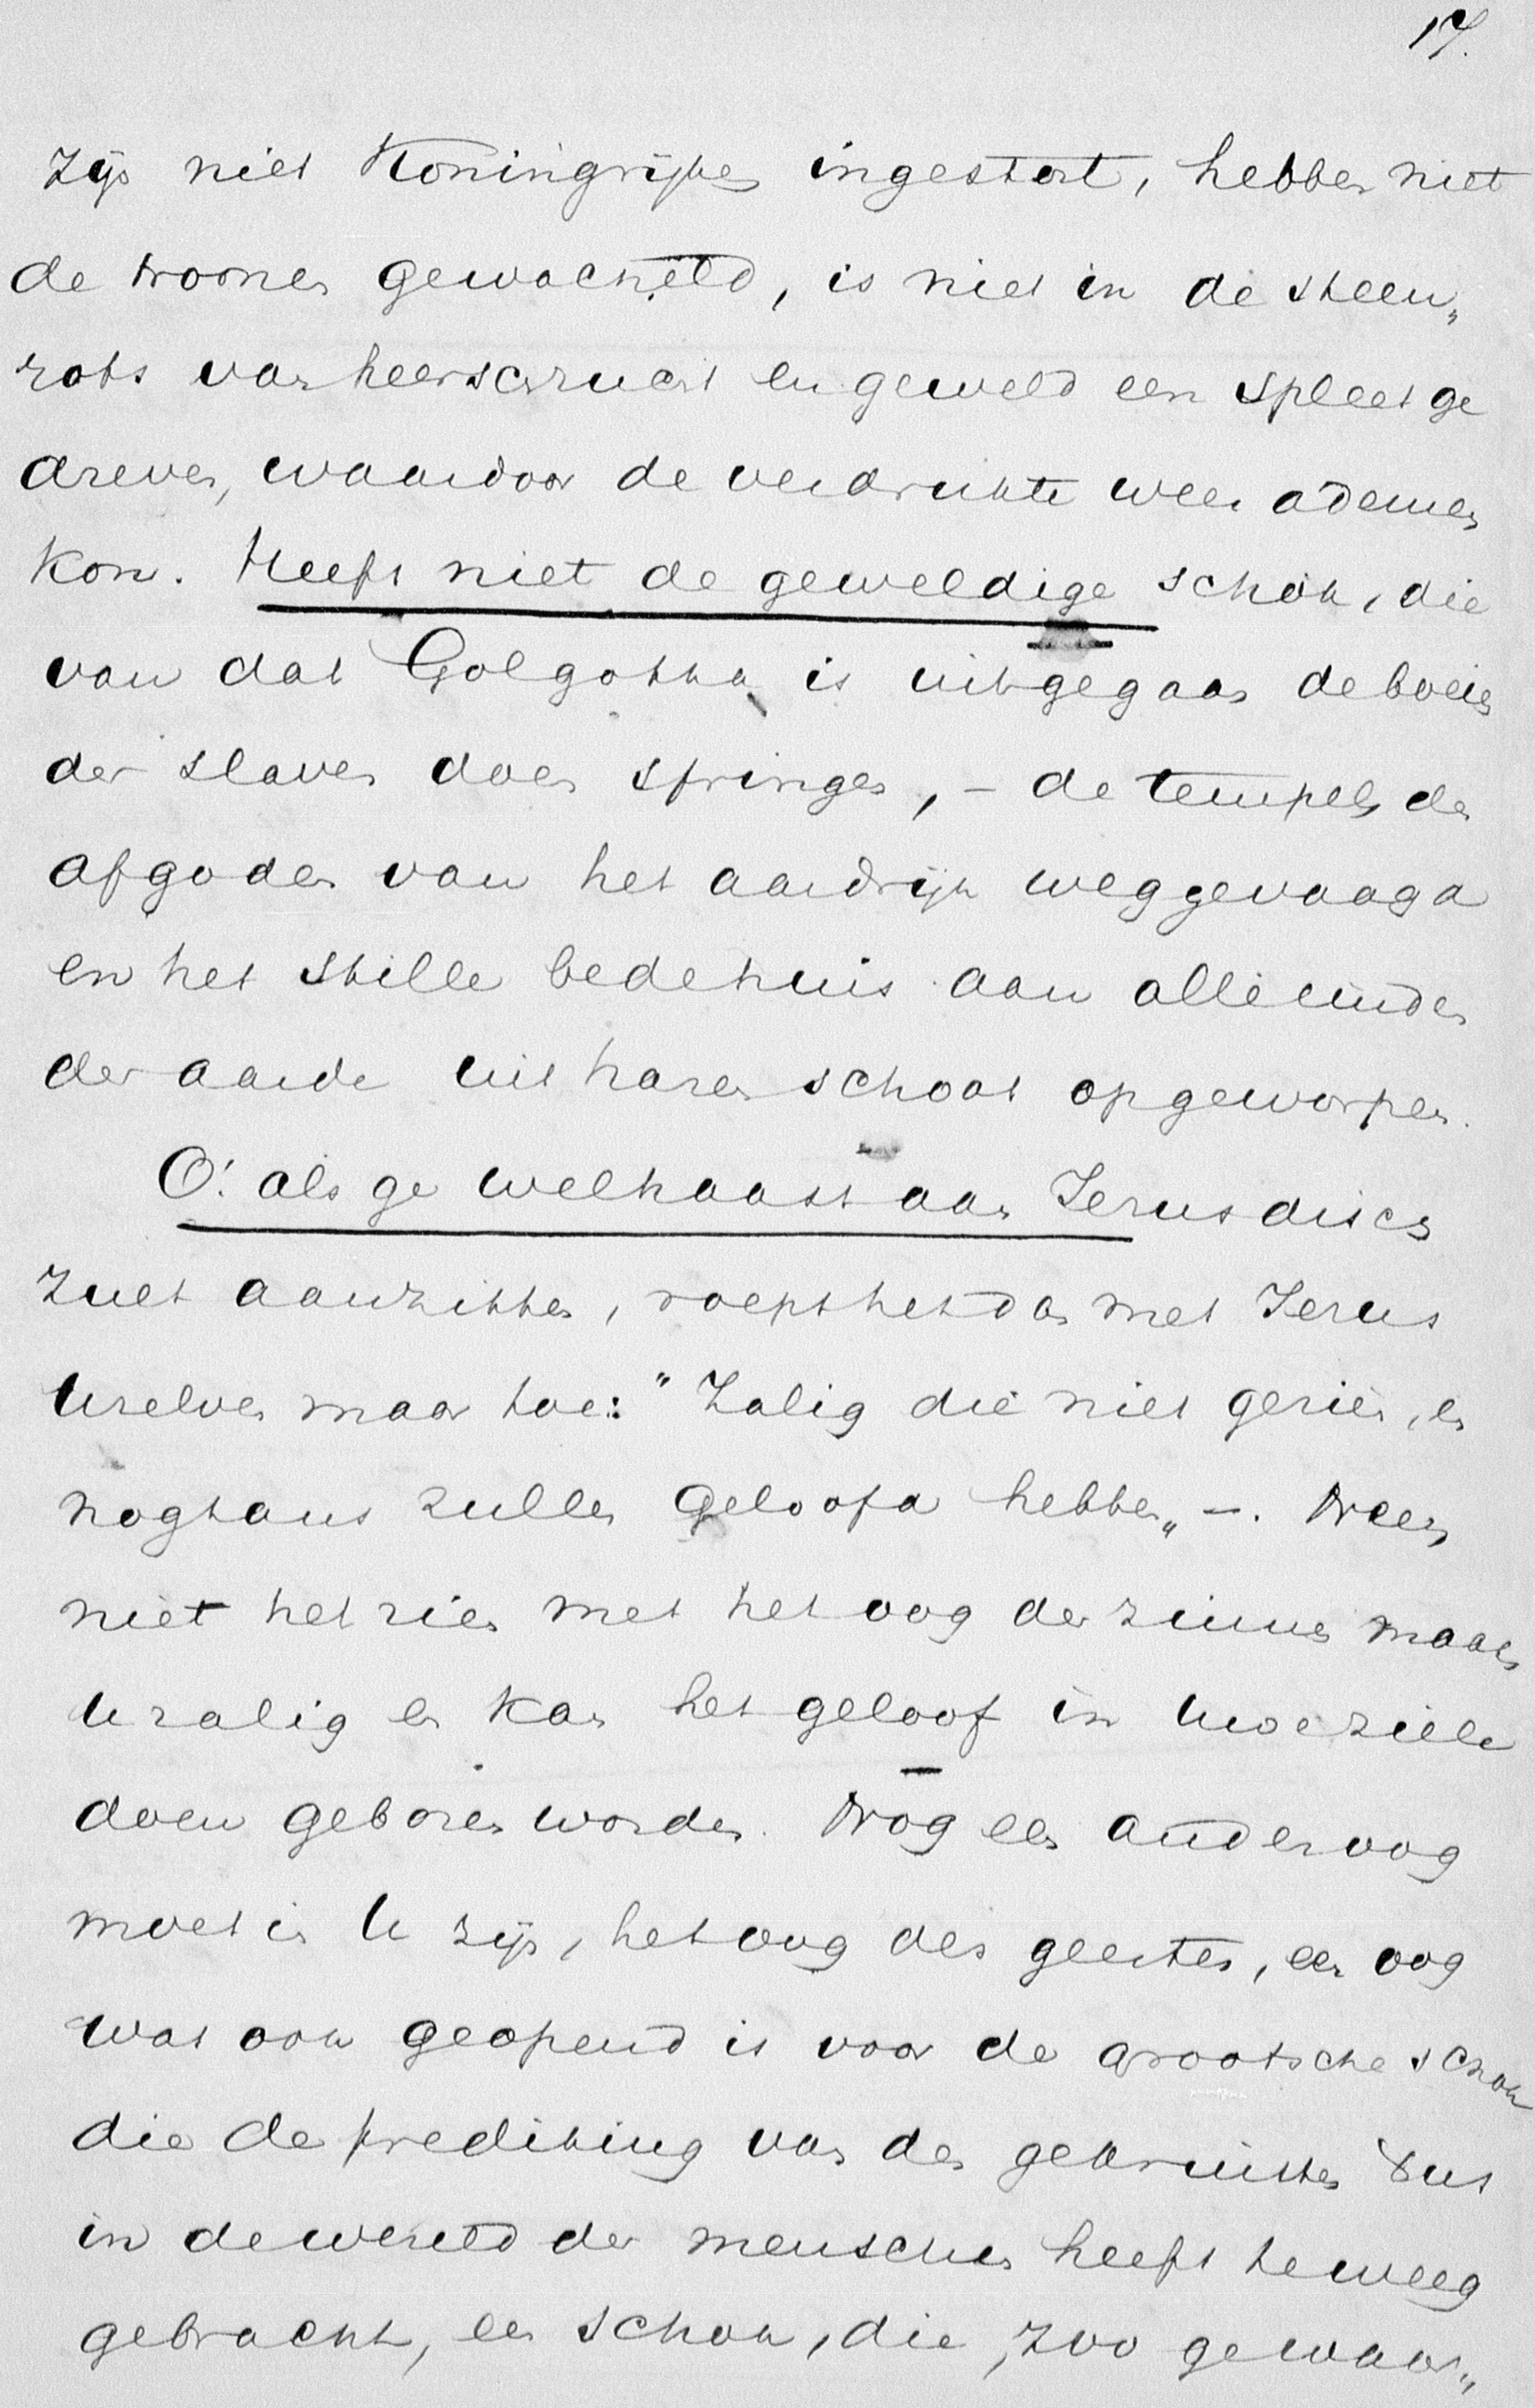 17.
zijn niet Koningrijken ingestort, hebben niet
de troonen gewaggeld, is niet in de steen„
rots van heerschzucht en geweld een spleet ge
dreven, waardoor de verdrukte weer ademen
kon. Heeft niet de geweldige schok, die
van dat Golgotha is uitgegaan de boeien
der slaven doen springen, – de tempels der
afgoden van het aardrijk weggevaagd
en het stille bedehuis aan alle einden
der aarde uit haren schoot opgeworpen.
O! als ge welhaast aan Jezus disch
zult aanzitten, roept het dan met Jezus
Uzelven maar toe: "Zalig die niet gezien, en
nogtans zullen geloofd hebben„ –. Neen,
niet het zien met het oog der zinnen maakt
U zalig en kan het geloof in Uwe ziele
doen geboren worden. Nog een ander oog
moet in U zijn, het oog des geestes, een oog
wat ook geopend is voor de grootsche schok
die de prediking van den gekruisten Xus
in de wereld der menschen heeft te weeg
gebracht, een schok, die, zoo gewaar„